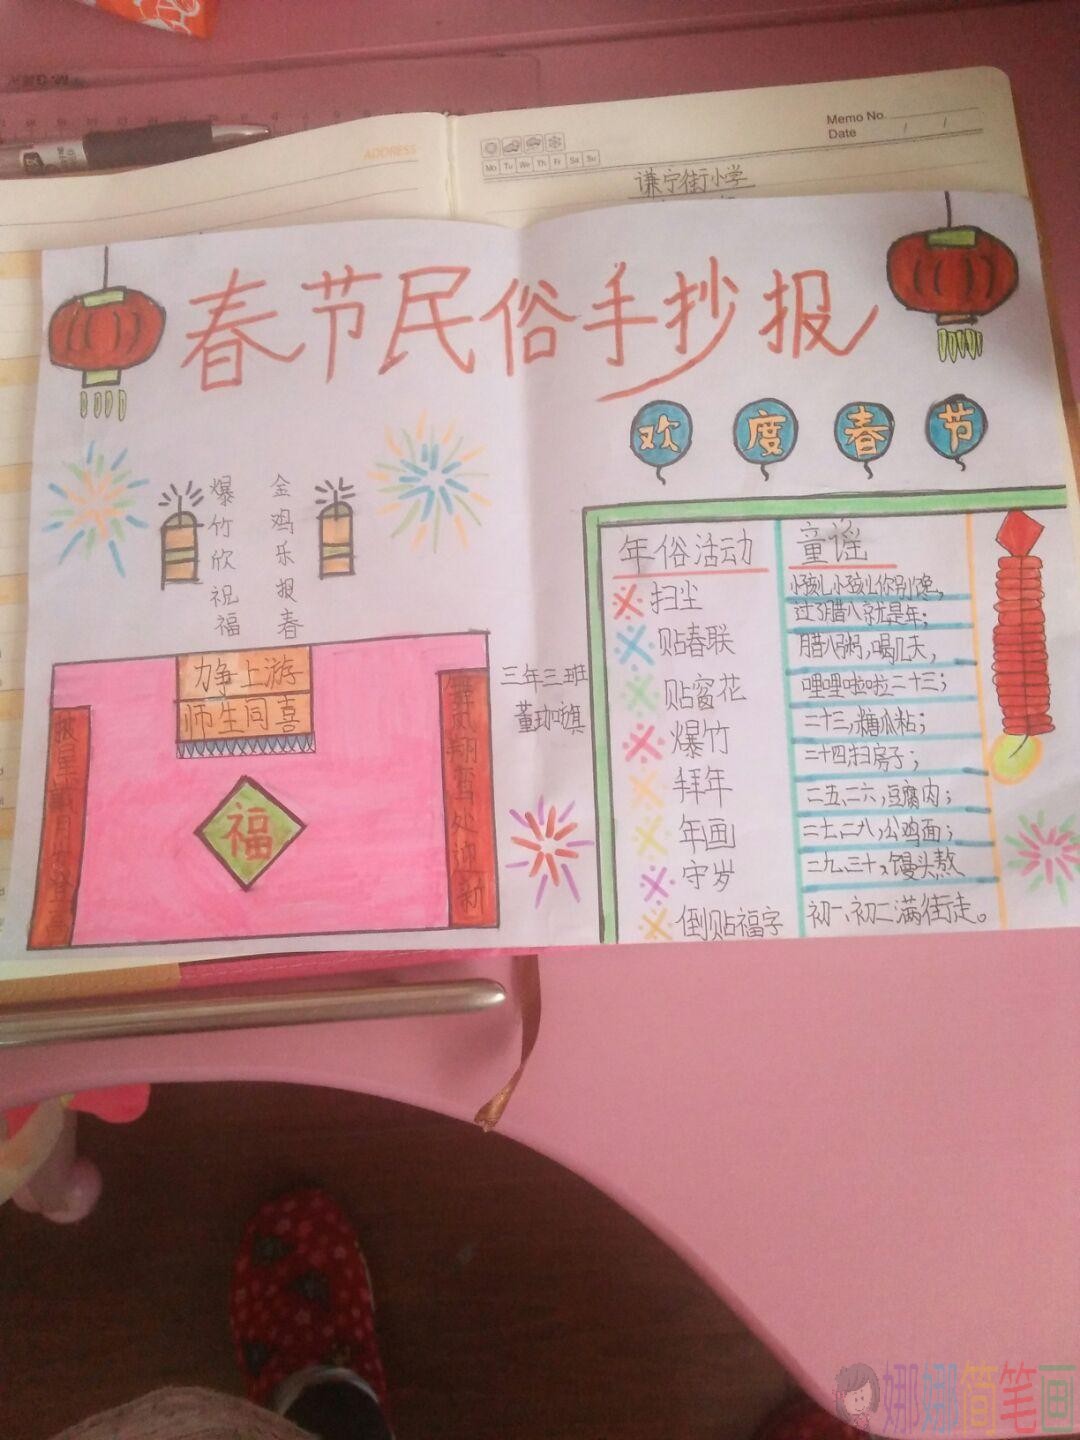 ADDRESS
Memo No.
Date / /
Mo Tu We Th Fr Sa Su
谦宁街小学
春节民俗手抄报
欢度春节
金鸡乐报春
爆竹欣祝福
力争上游
师生同喜
披星戴月
舞凤翔鸾处处迎新
福
三年三班
董珈旗
年俗活动
扫尘
贴春联
贴窗花
爆竹
拜年
年画
守岁
倒贴福字
童谣
小孩儿小孩儿你别馋,
过了腊八就是年;
腊八粥,喝几天,
哩哩啦啦二十三;
二十三,糖瓜粘;
二十四扫房子;
二五、二六,豆腐肉;
二七、二八,公鸡面;
二九、三十、馒头熬
初一、初二满街走。
娜娜简笔画